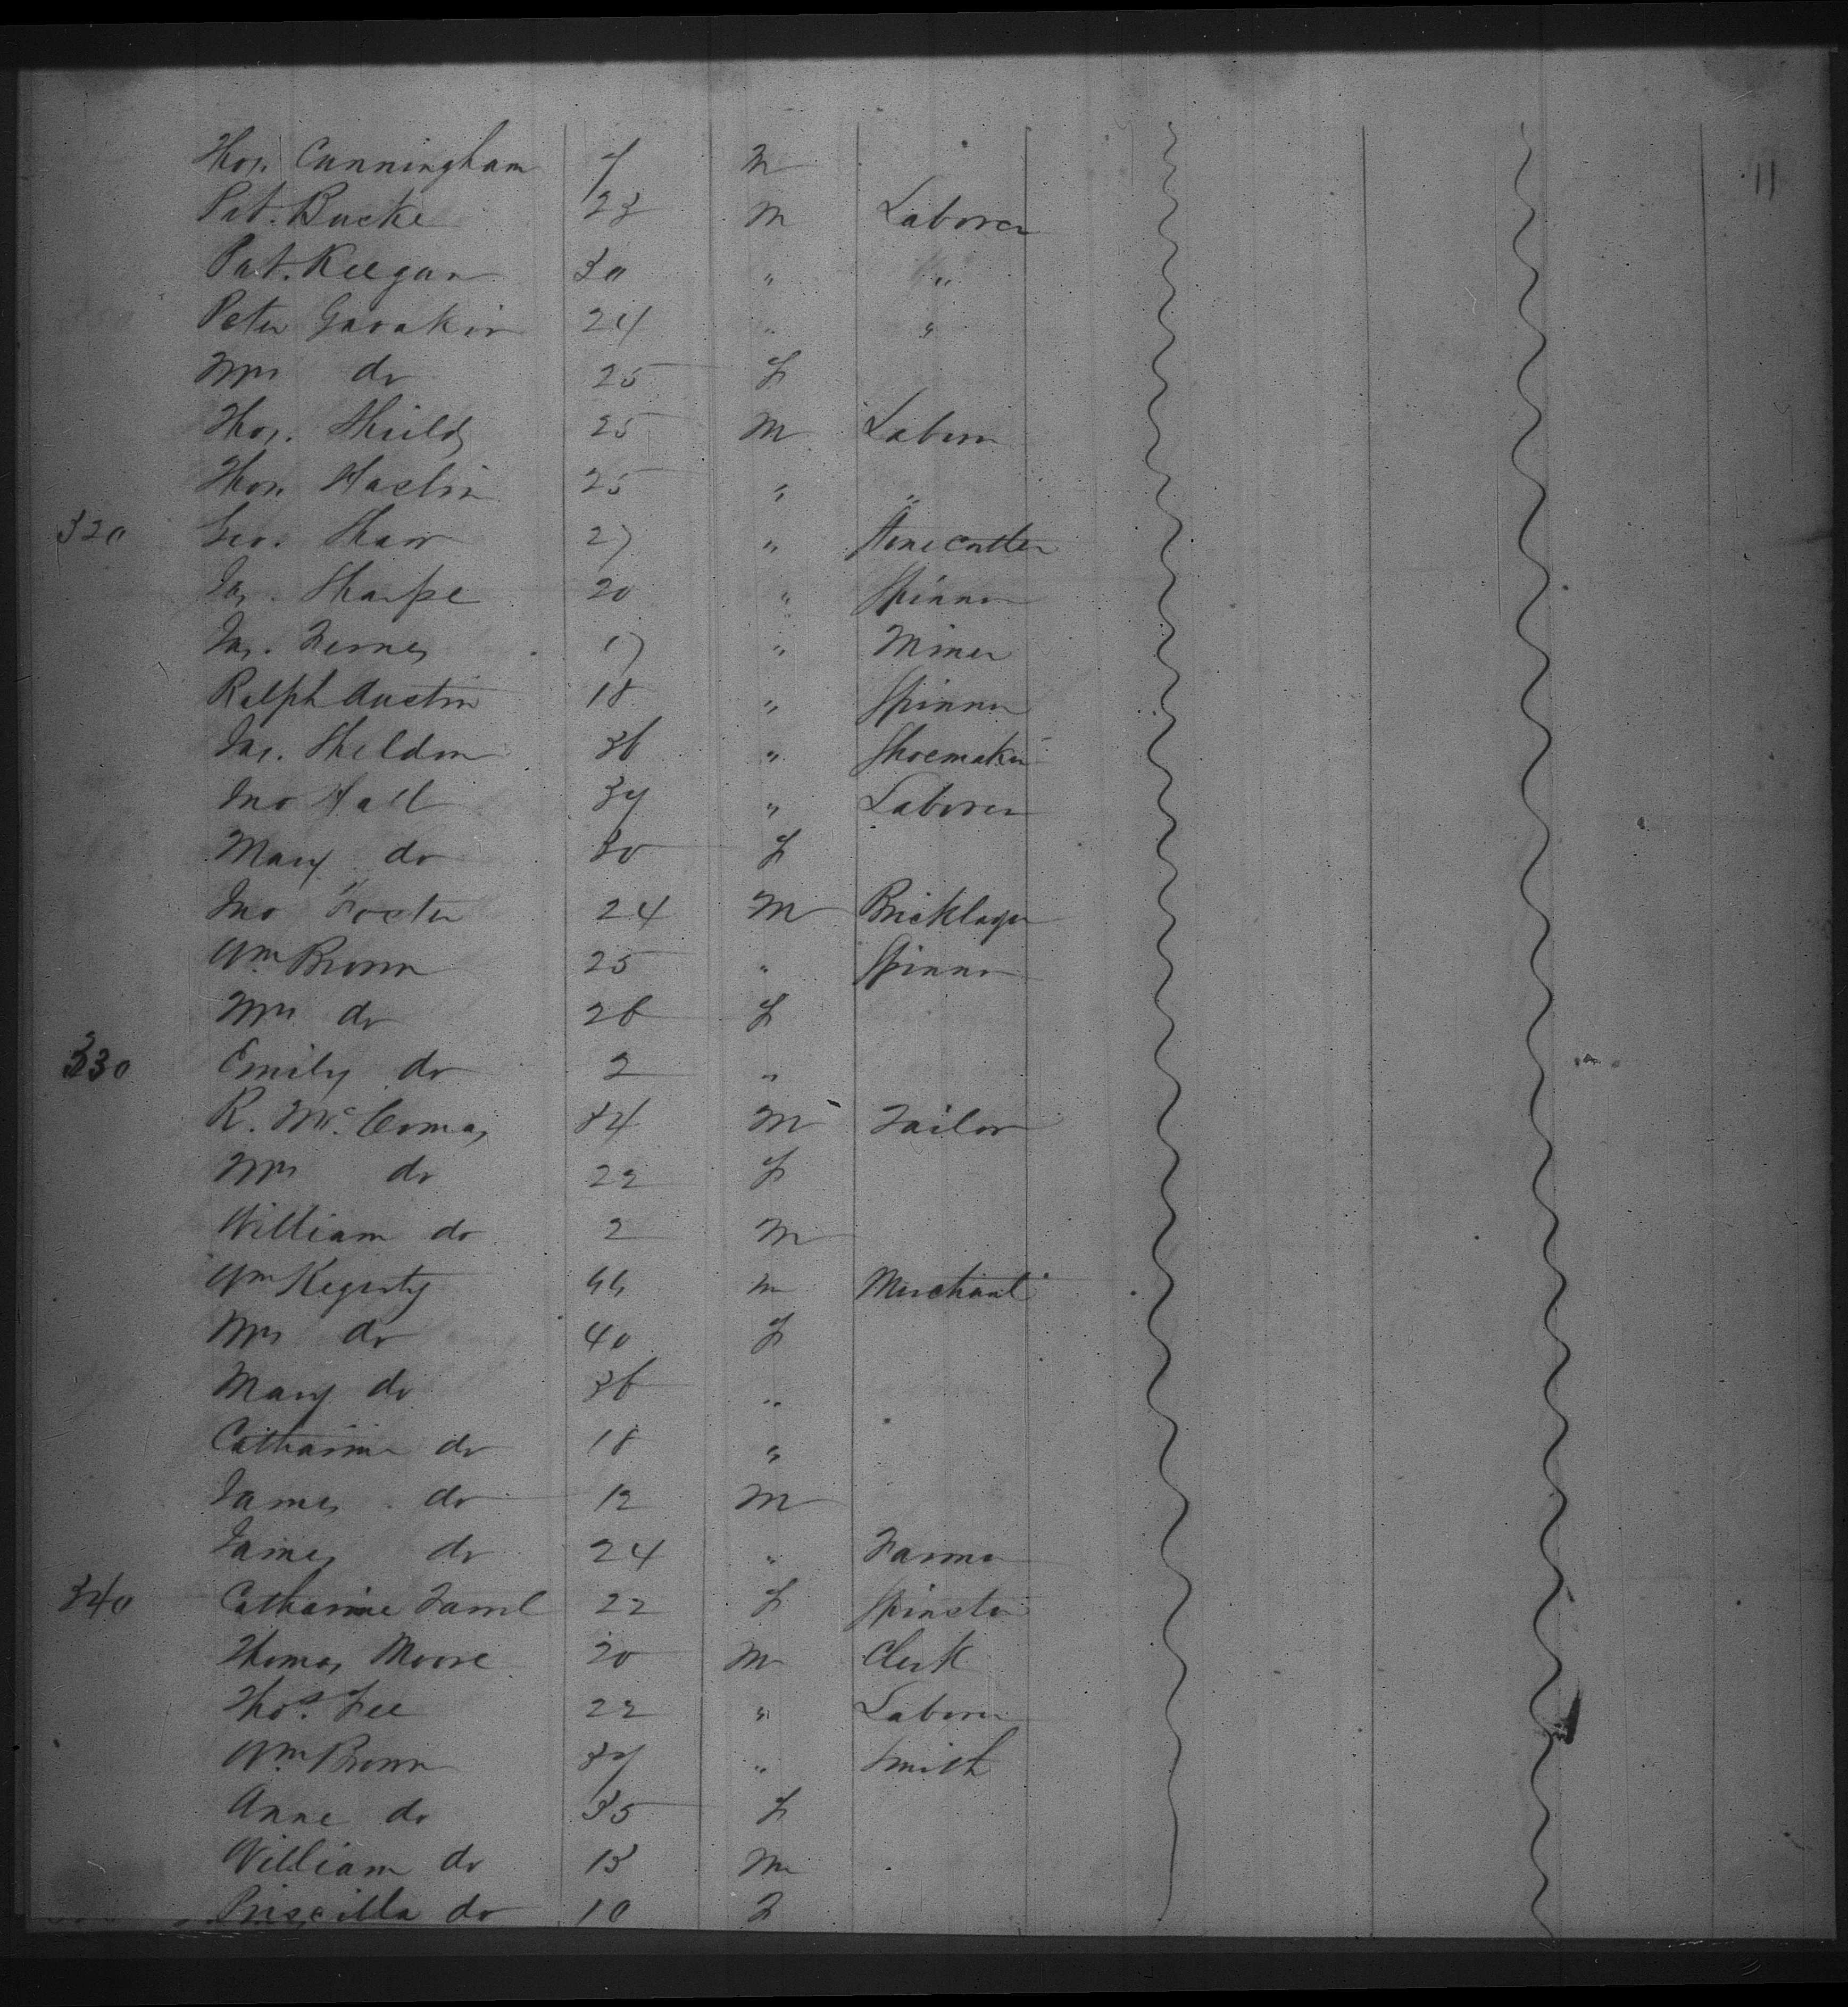 11
Thos. Cunningham 7 M
Pat. Burke 23 M Laborer
Pat. Keegan 30 " "
Peter Gavakin 24 " "
Mrs do 25 F
Thos. Shields 25 M Laborer
Thos. Haslin 25 " "
320 Geo. Shaw 27 " Stonecutter
Jas. Sharpe 20 " Spinner
Jas. Fernes 17 " Miner
Ralph Austin 18 " Spinner
Jas. Sheldon 36 " Shoemaker
Jno Hall 37 " Laborer
Mary do 30 F
Jno Foster 24 M Bricklayer
Wm Brown 25 " Spinner
Mrs do 26 F
330 Emily do 2 "
R. McComas 34 M Tailor
Mrs do 22 F
William do 2 M
Wm Hegerty 44 M Merchant
Mrs do 40 F
Mary do 36 "
Catharine do 18 "
James do 12 M
James do 24 " Farmer
340 Catharine 22 F Spinster
Thomas Moore 20 M Clerk
Thos. Fee 22 " Laborer
Wm Brown 37 " Smith
Anne do 35 F
William do 13 M
Priscilla do 10 F